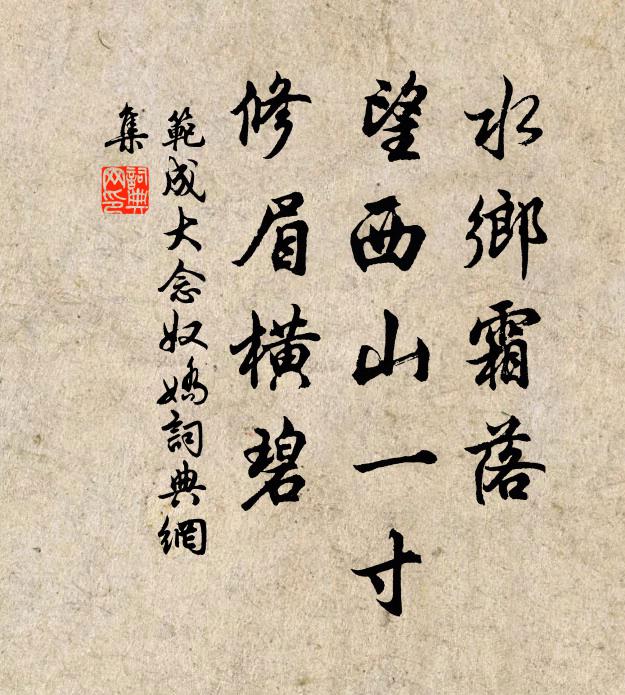 水鄉霜落
望西山一寸
修眉橫碧
範成大念奴嬌詞典網
集
詞典網印